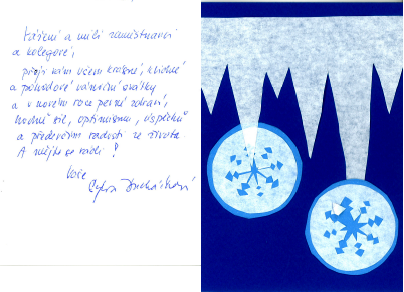 Vážení a milí zaměstnanci
a kolegové,
přeji vám všem krásné, klidné
a pohodové vánoční svátky
a v novém roce pevné zdraví,
hodně sil, optimismu, úspěchů
a především radosti ze života.
A mějte se rádi!
Vaše